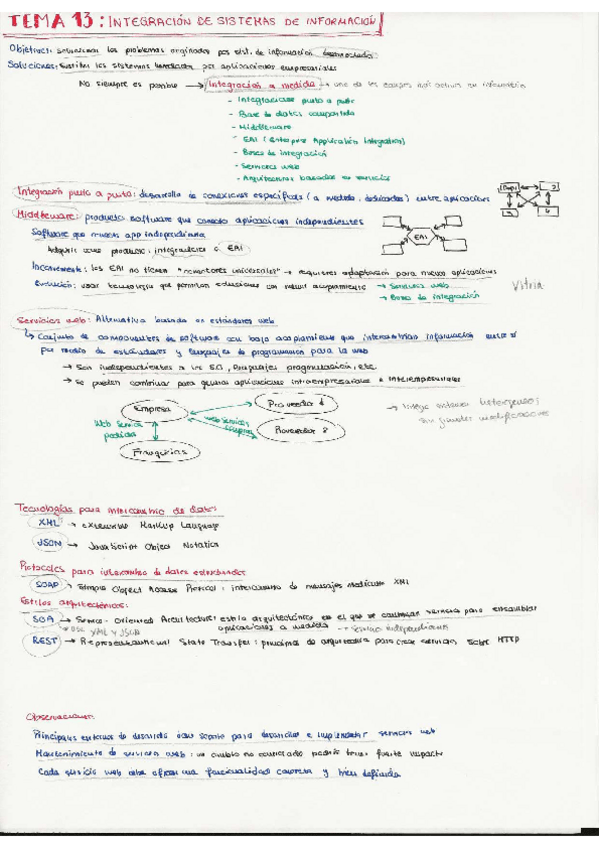 TEMA 13: INTEGRACIÓN DE SISTEMAS DE INFORMACIÓN
Objetivo: solucionar los problemas originados por sist. de información
Soluciones: Sustituir los sistemas heredados por aplicaciones empresariales
No siempre es posible → Integración a medida → uno de los campos más activos en informática
- Integraciones punto a punto
- Base de datos compartida
- Middleware
- EAI (Enterprise Application Integration)
- Buses de integración
- Servicios web
- Arquitecturas basadas en servicios
Integración punto a punto: desarrollo de conexiones específicas (a medida, dedicadas) entre aplicaciones
Middleware: producto software que conecta aplicaciones independientes
Software que conecta app independiente
EAI
Adquirir como producto: integradores o EAI
Inconveniente: los EAI no tienen "conectores universales" → requieren adaptación para nuevas aplicaciones
Evolución: usar tecnología que permitan soluciones con menor acoplamiento → Servicios web
→ Buses de integración
Vitria
Servicios web: Alternativa basada en estándares web
↳ Conjunto de componentes de software con bajo acoplamiento que intercambian información entre sí
por medio de estándares y lenguajes de programación para la web
→ Son independientes a los S.O, lenguajes programación, etc
→ Se pueden combinar para generar aplicaciones intraempresariales e interempresariales
Empresa
Proveedor 1
Proveedor 2
Franquicias
web servicios
Web Servicio
pedidos
→ Integra sistemas heterogéneos
sin grandes modificaciones
Tecnologías para intercambio de datos
XML → eXtensible Markup Language
JSON → JavaScript Object Notation
Protocolos para intercambio de datos estructurados
SOAP → Simple Object Access Protocol: intercambio de mensajes mediante XML
Estilos arquitectónicos:
SOA → Service-Oriented Architecture: estilo arquitectónico en el que se construyen servicios para ensamblar
aplicaciones a medida → Servicios independientes
usa XML y JSON
REST → Representational State Transfer: principios de arquitectura para crear servicios sobre HTTP
Observaciones:
Principales entornos de desarrollo dan soporte para desarrollar e implementar servicios web
Mantenimiento de servicios web: un cambio no controlado podría tener fuerte impacto
Cada servicio web debe ofrecer una funcionalidad concreta y bien definida